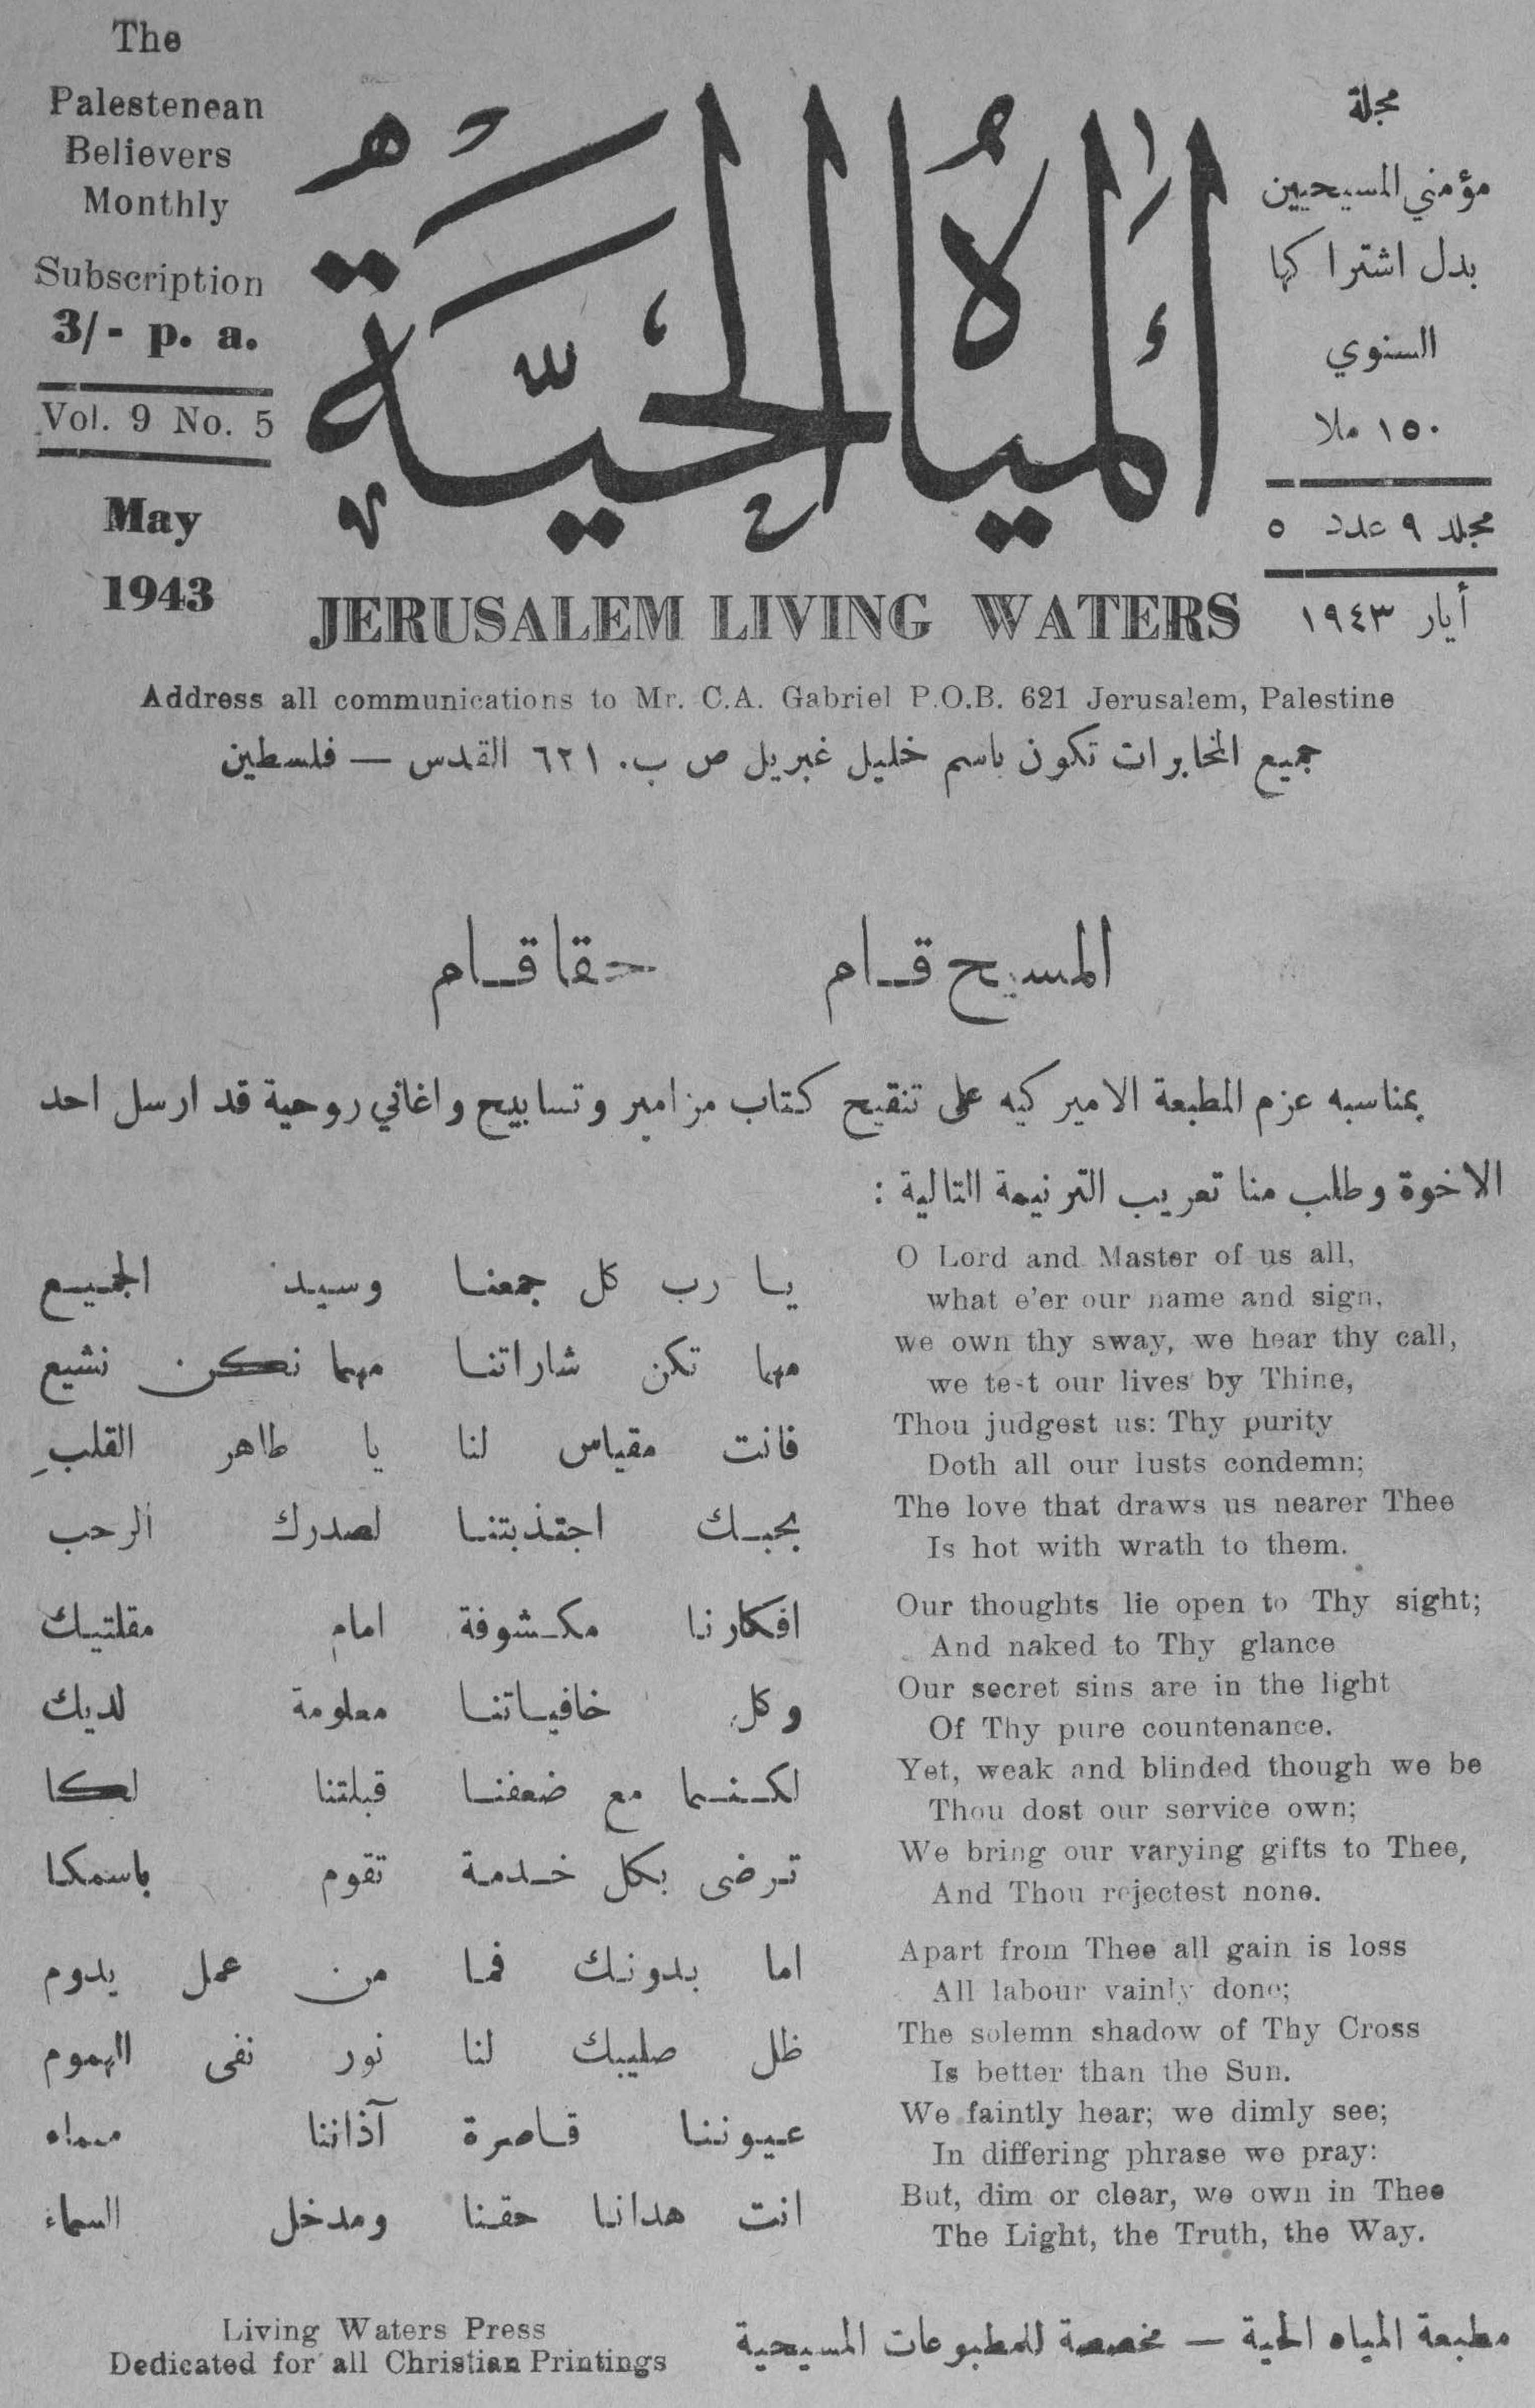 The
Palestenean
Believers
Monthly
Subscription
3/- p. a.
Vol. 9 No. 5
May
1943
المياه الحية
مجلة
مؤمني المسيحيين
بدل اشتراكها
السنوي
١٥٠ ملا
مجلد ٩ عدد ٥
أيار ١٩٤٣
JERUSALEM LIVING WATERS
Address all communications to Mr. C.A. Gabriel P.O.B. 621 Jerusalem, Palestine
جميع المخابرات تكون باسم خليل غبريل ص ب. ٦٢١ القدس — فلسطين
المسيح قام حقا قام
بمناسبه عزم المطبعة الاميركيه على تنقيح كتاب مزامير وتسابيح واغاني روحية قد ارسل احد
الاخوة وطلب منا تعريب الترنيمة التالية :
O Lord and Master of us all,
what e'er our name and sign,
we own thy sway, we hear thy call,
we te-t our lives by Thine,
Thou judgest us: Thy purity
Doth all our lusts condemn;
The love that draws us nearer Thee
Is hot with wrath to them.
Our thoughts lie open to Thy sight;
And naked to Thy glance
Our secret sins are in the light
Of Thy pure countenance.
Yet, weak and blinded though we be
Thou dost our service own;
We bring our varying gifts to Thee,
And Thou rejectest none.
Apart from Thee all gain is loss
All labour vainly done;
The solemn shadow of Thy Cross
Is better than the Sun.
We faintly hear; we dimly see;
In differing phrase we pray:
But, dim or clear, we own in Thee
The Light, the Truth, the Way.
يا رب كل جمعنا وسيد الجميع
مهما تكن شاراتنا مهما نكن نشيع
فانت مقياس لنا يا طاهر القلبِ
بحبك اجتذبتنا لصدرك الرحب
افكارنا مكشوفة امام مقلتيك
وكل خافياتنا معلومة لديك
لكنما مع ضعفنا قبلتنا لكا
ترضى بكل خدمة تقوم باسمكا
اما بدونك فما من عمل يدوم
ظل صليبك لنا نور نفى الهموم
عيوننا قاصرة آذاننا صماء
انت هدانا حقنا ومدخل السماء
Living Waters Press
Dedicated for all Christian Printings
مطبعة المياه الحية — مخصصة للمطبوعات المسيحية